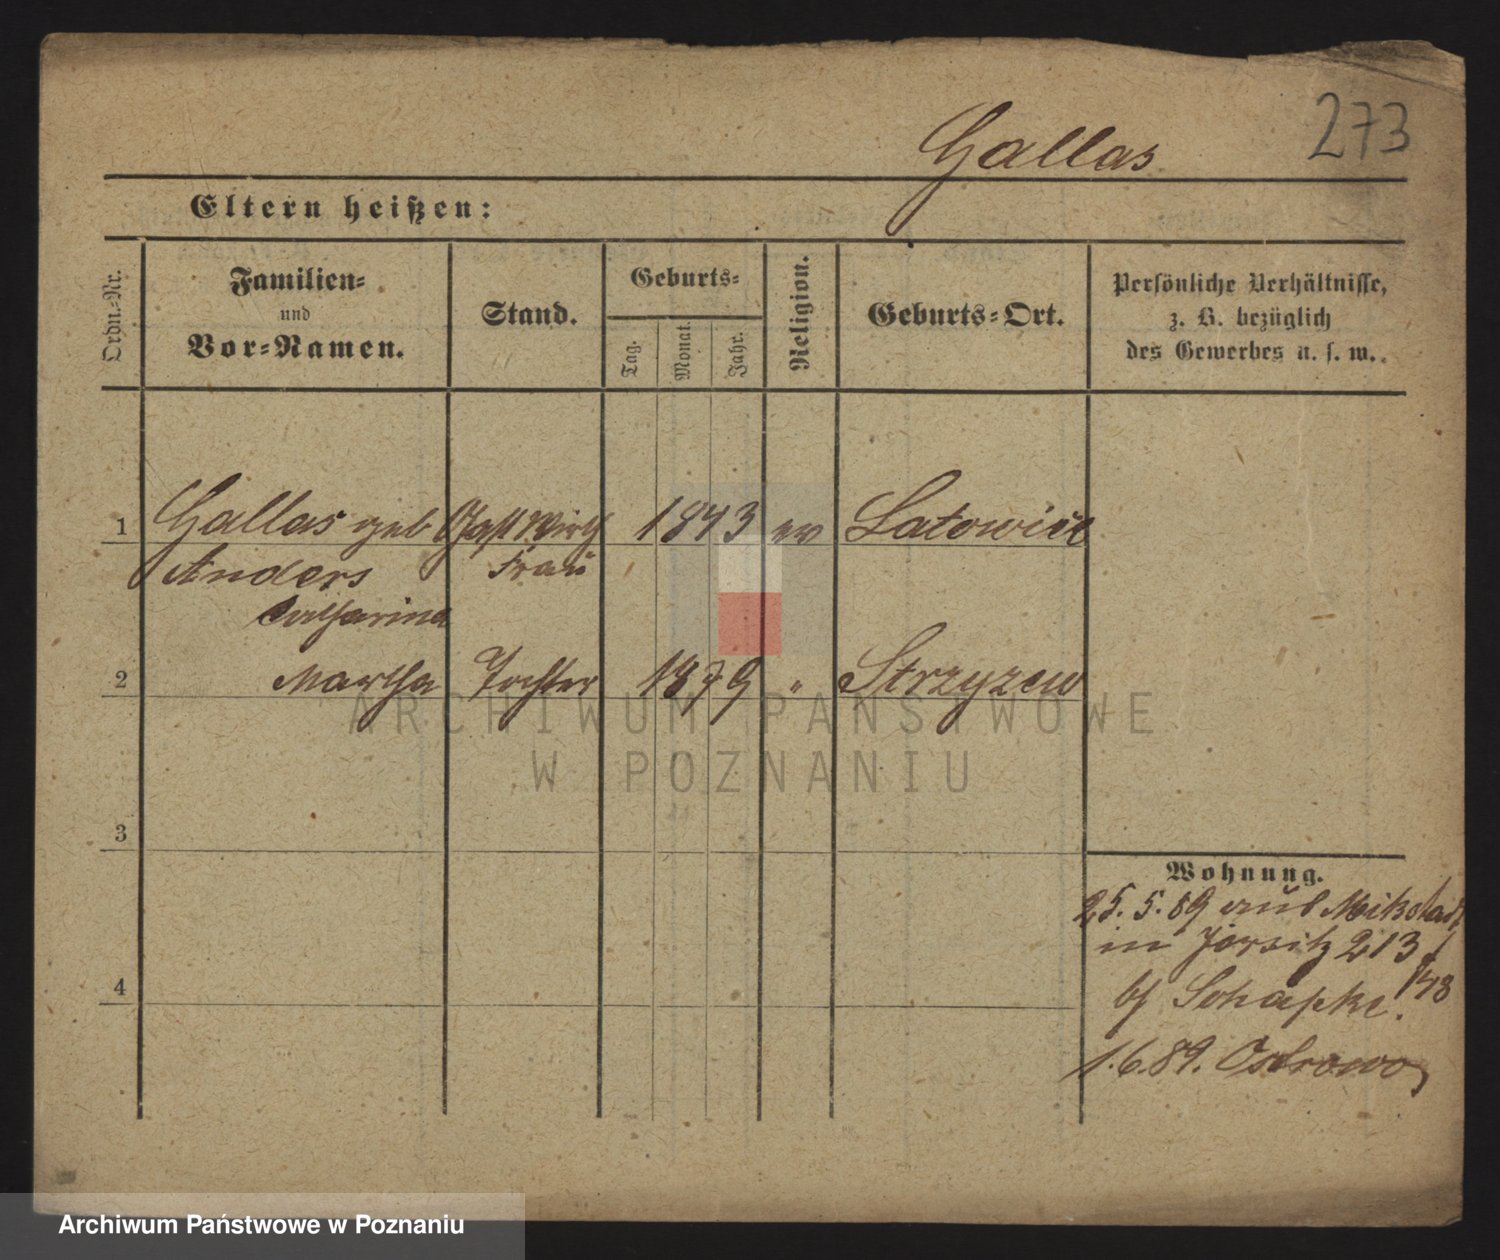 Gallas
273
Eltern heißen:
Ordn.-Nr.
Familien-
und
Vor-Namen.
Stand.
Geburts-
Tag.
Monat.
Jahr.
Religion.
Geburts-Ort.
Persönliche Verhältnisse,
z. B. bezüglich
des Gewerbes u. s. w.
1 Gallas geb Gast Wirth 1843 ev Latowice
Anders Frau
Catharina
2 Martha Tochter 1879 " Strzyzew
3
4
Wohnung.
25.5.89 aus Mikstadt
in Jersitz 213
b/ Schapke. 148
1.6.89. Ostrowo
ARCHIWUM PAŃSTWOWE
W POZNANIU
Archiwum Państwowe w Poznaniu